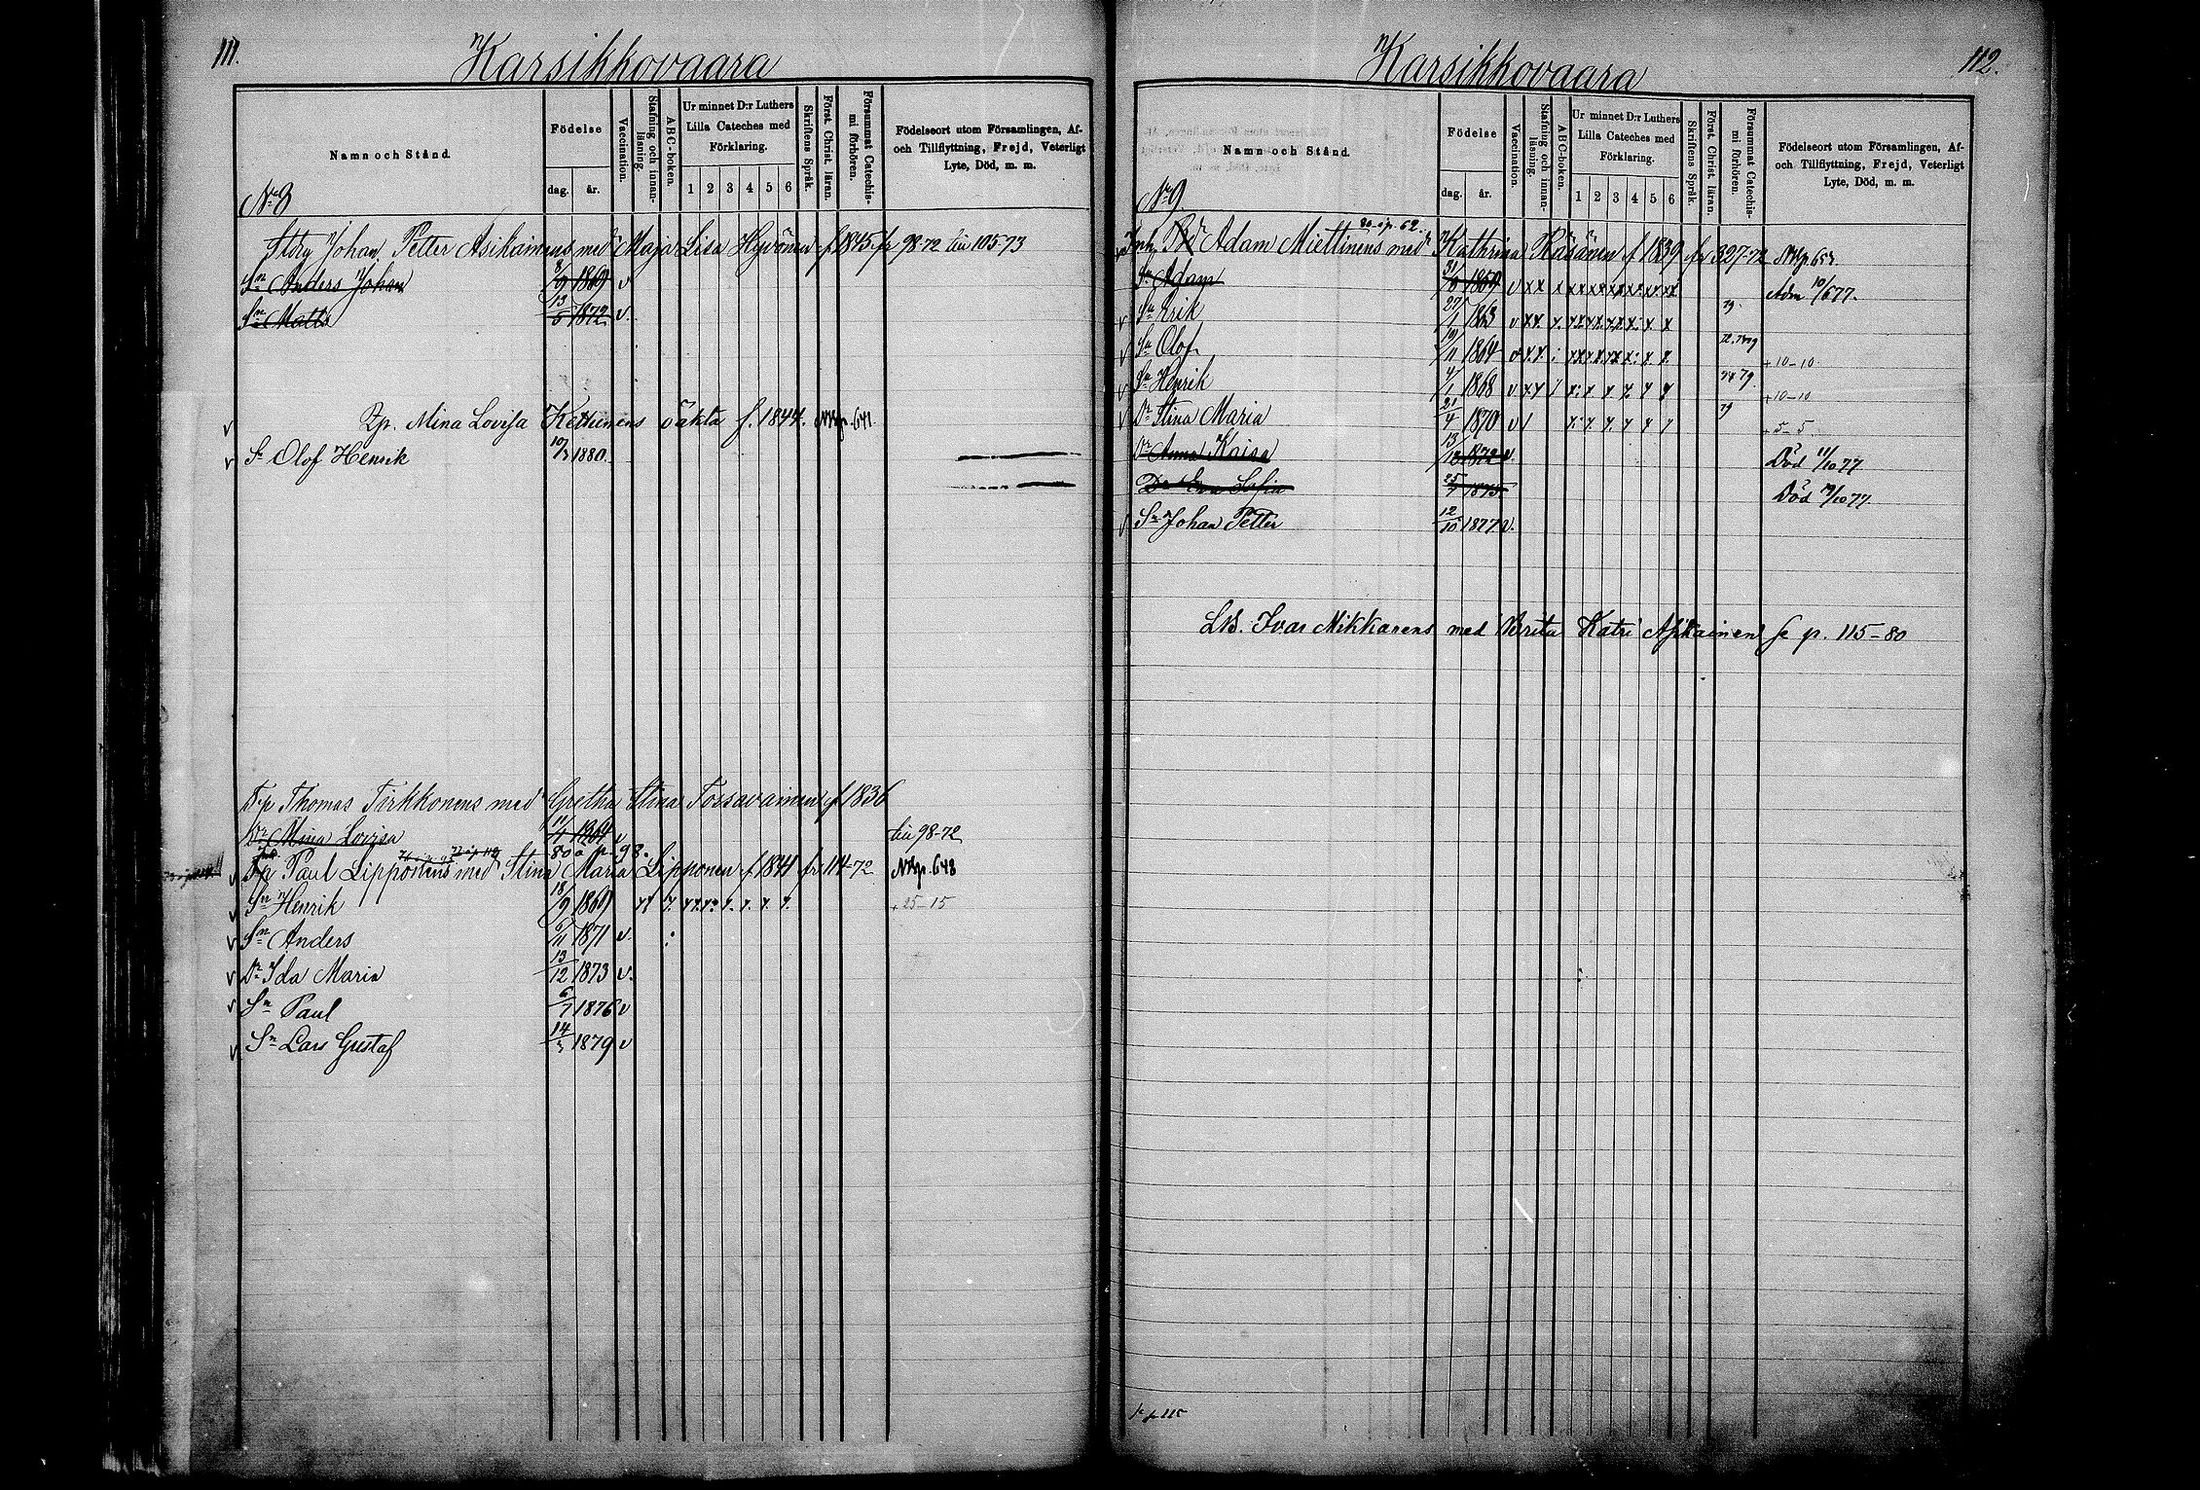 111.
Karsikkovaara
Namn och Stånd.
Födelse
dag. år.
Vaccination.
Stafning och innanläsning.
ABC-boken.
Ur minnet D:r Luthers Lilla Cateches med Förklaring.
1 2 3 4 5 6
Skriftens Språk.
Först. Christ. läran.
Försummat Catechismi förhören.
Födelseort utom Församlingen, Af- och Tillflyttning, Frejd, Veterligt Lyte, Död, m. m.
No 8
Johan Petter Asikainens med Maja Lisa Hyvönen f 1845 fr 98-72 till 105-73
Sn Anders Johan 8/9 1869 v
Sn Matts 13/5 1872 v.
v Mina Lovisa Kettunens oäkta f. 1844. 641
v Sn Olof Henrik 1880.
Thomas Tirkkonens med Gretha Stina Tossavainen f 1836
Dr Mina Lovisa 11/4 1864 v till 98-72
80 å p. 98.
v Paul Lipponens med Stina Maria Lipponen f. 1841 fr 114-72 648
v Sn Henrik 18/9 1869 + 25-15
v Sn Anders 6/11 1871 v.
v Dr Ida Maria 13/12 1873 v.
v Sn Paul 6/7 1876 v
v Sn Lars Gustaf 14/3 1879 v
112.
Karsikkovaara
Namn och Stånd.
Födelse
dag. år.
Vaccination.
Stafning och innanläsning.
ABC-boken.
Ur minnet D:r Luthers Lilla Cateches med Förklaring.
1 2 3 4 5 6
Skriftens Språk.
Först. Christ. läran.
Försummat Catechismi förhören.
Födelseort utom Församlingen, Af- och Tillflyttning, Frejd, Veterligt Lyte, Död, m. m.
No 9.
80 å p. 62.
Adam Miettinens med Kathrina Räsänen f 1839 fr 327-72
Sn Adam 1859 v
v Sn Erik 27/1 1863 v 79.
v Sn Olof 1864 + 10-10
v Sn Henrik 4/1 1868 v 79. + 10-10
v Dr Stina Maria 21/4 1870 v 79 + 5-5
Dr Anna Kaisa 13/12 1872 v. Död 11/10 77
Dr Eva Sofia 25/7 1875 Död 19/10 77
v Sn Johan Petter 12/10 1877 v.
Ivar Mikkanens med Brita Katri Asikainen se p. 115-80
se p 115